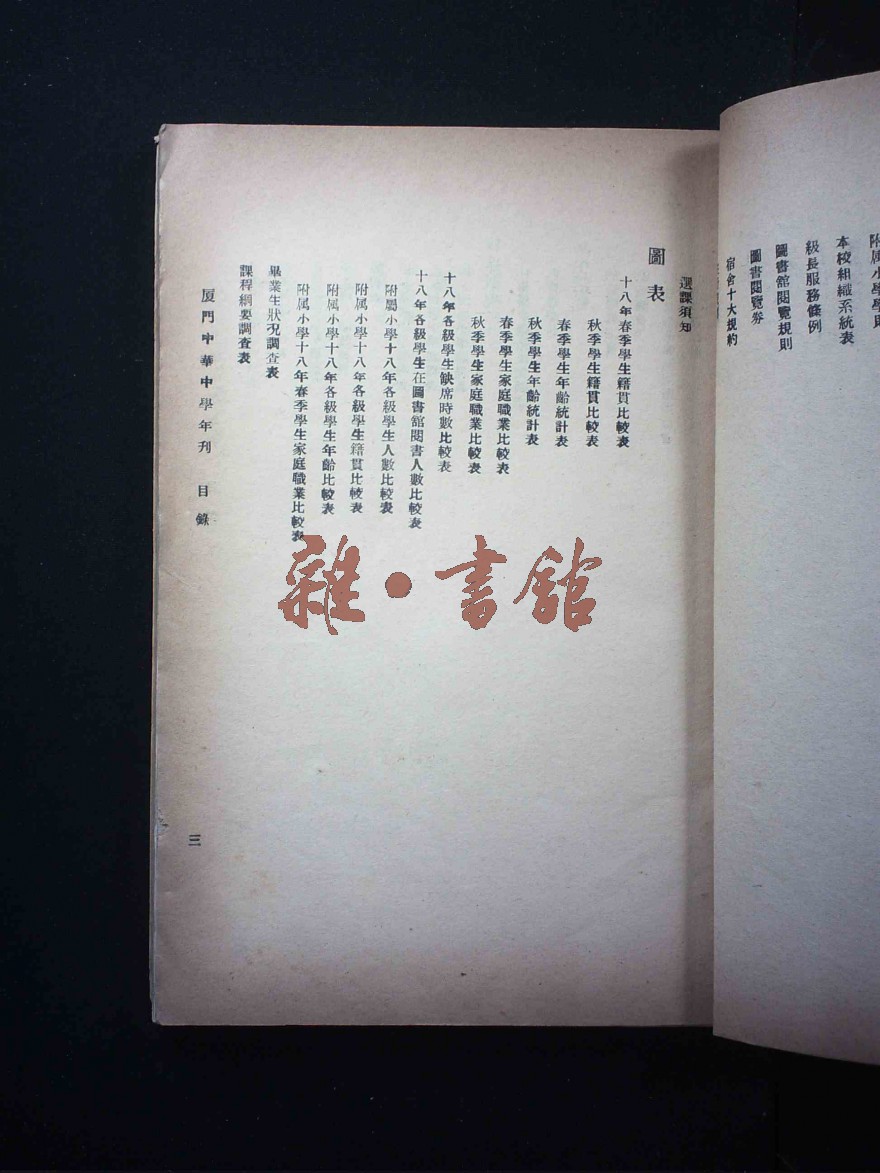 附属小學學則
本校組織系統表
級長服務條例
圖書舘閱覽規則
圖書閱覽券
宿舍十大規約
選課須知
圖表
十八年春季學生籍貫比較表
秋季學生籍貫比較表
春季學生年齡統計表
秋季學生年齡統計表
春季學生家庭職業比較表
秋季學生家庭職業比較表
十八年各級學生缺席時數比較表
十八年各級學生在圖書舘閱書人數比較表
附屬小學十八年各級學生人數比較表
附属小學十八年各級學生籍貫比較表
附属小學十八年各級學生年齡比較表
附属小學十八年春季學生家庭職業比較表
畢業生狀况調查表
課程綱要調查表
厦門中華中學年刊 目錄
三
雜·書舘